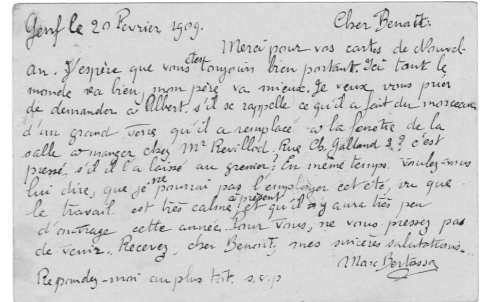 Genf le 20 Fevrier 1909.
Cher Benoit.
Merci pour vos cartes de Nouvel-
an. J'espère que vous êtes toujours bien portant. Ici tout le
monde va bien, mon père va mieux. Je veux vous prier
de demander à Albert s'il se rappelle ce qu'il a fait du morceau
d'un grand verre qu'il a remplacé à la fenêtre de la
salle à manger chez Mr Revillod. Rue Ch. Galland 2? c'est
pressé. s'il il l'a laissé au grenier? En même temps, voulez-vous
lui dire, que je ne pourrai pas l'employer cet été, vu que
le travail est très calme à présent, et qu'il y aura très peu
d'ouvrage cette année. Pour vous, ne vous pressez pas
de venir. Recevez, cher Benoit, mes sincères salutations.
Marc Bertassa
Repondez-moi au plus tôt. s.v.p